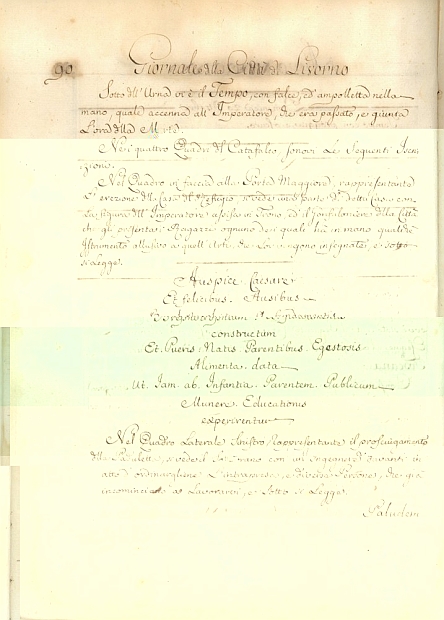 90 Giornale della Città di Livorno
Sotto dell'Urna vi è il Tempo, con falce, ed ampolletta nella
mano, quale accenna all'Imperatore, che era passato, e giunta
l'ora della Morte.
Nei quattro Quadri del Catafalco, sonovi le seguenti Iscri
zioni.
Nel Quadro in faccia alla Porta Maggiore, rappresentante
l'erezione della Casa di Refugio, si vede una parte di detta Casa con
la figura dell'Imperatore assiso in Trono, ed il Gonfaloniere della Città
che gli presenta Ragazzi, ognuno dei quali ha in mano qualche
Istrumento allusivo a quell'Arti, che loro vengono insegnate, e sotto
si legge.
Auspice Caesare
Et felicibus Ausibus
constructum
Et Pueris Natis Parentibus Egestosis
Alimenta data
Ut Jam ab Infantia Parentem Publicum
Munere Educationis
experirentur
Nel Quadro Laterale Sinistro Rappresentante il prosciugamento
delle Padulette, si vede il Sovrano con un Ingegnere davanti in
atto d'ordinargliene l'intrapresa, e diverse Persone, che già
incominciano a' Lavorarvi, e sotto si Legge.
Paludem